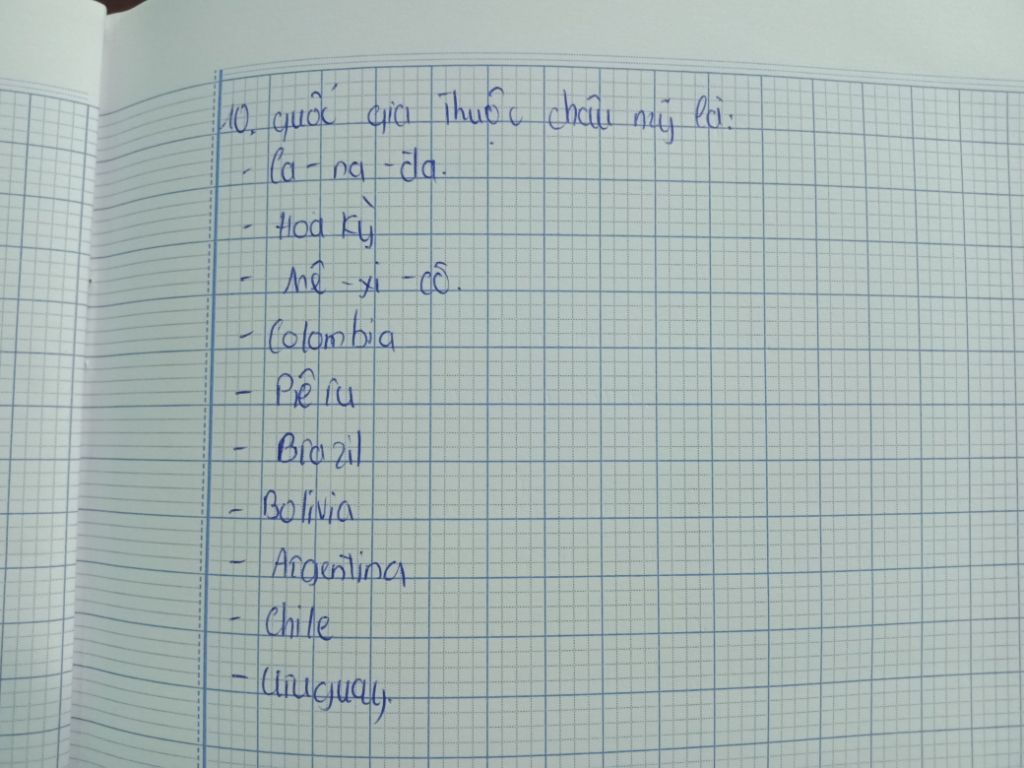 10. quốc gia Thuộc châu mỹ là:
- Ca - na - đa.
- Hoa Kỳ
- Mê - xi - cô.
- Colombia
- Pêru
- Brazil
- Bolivia
- Argentina
- Chile
- Uruguay.